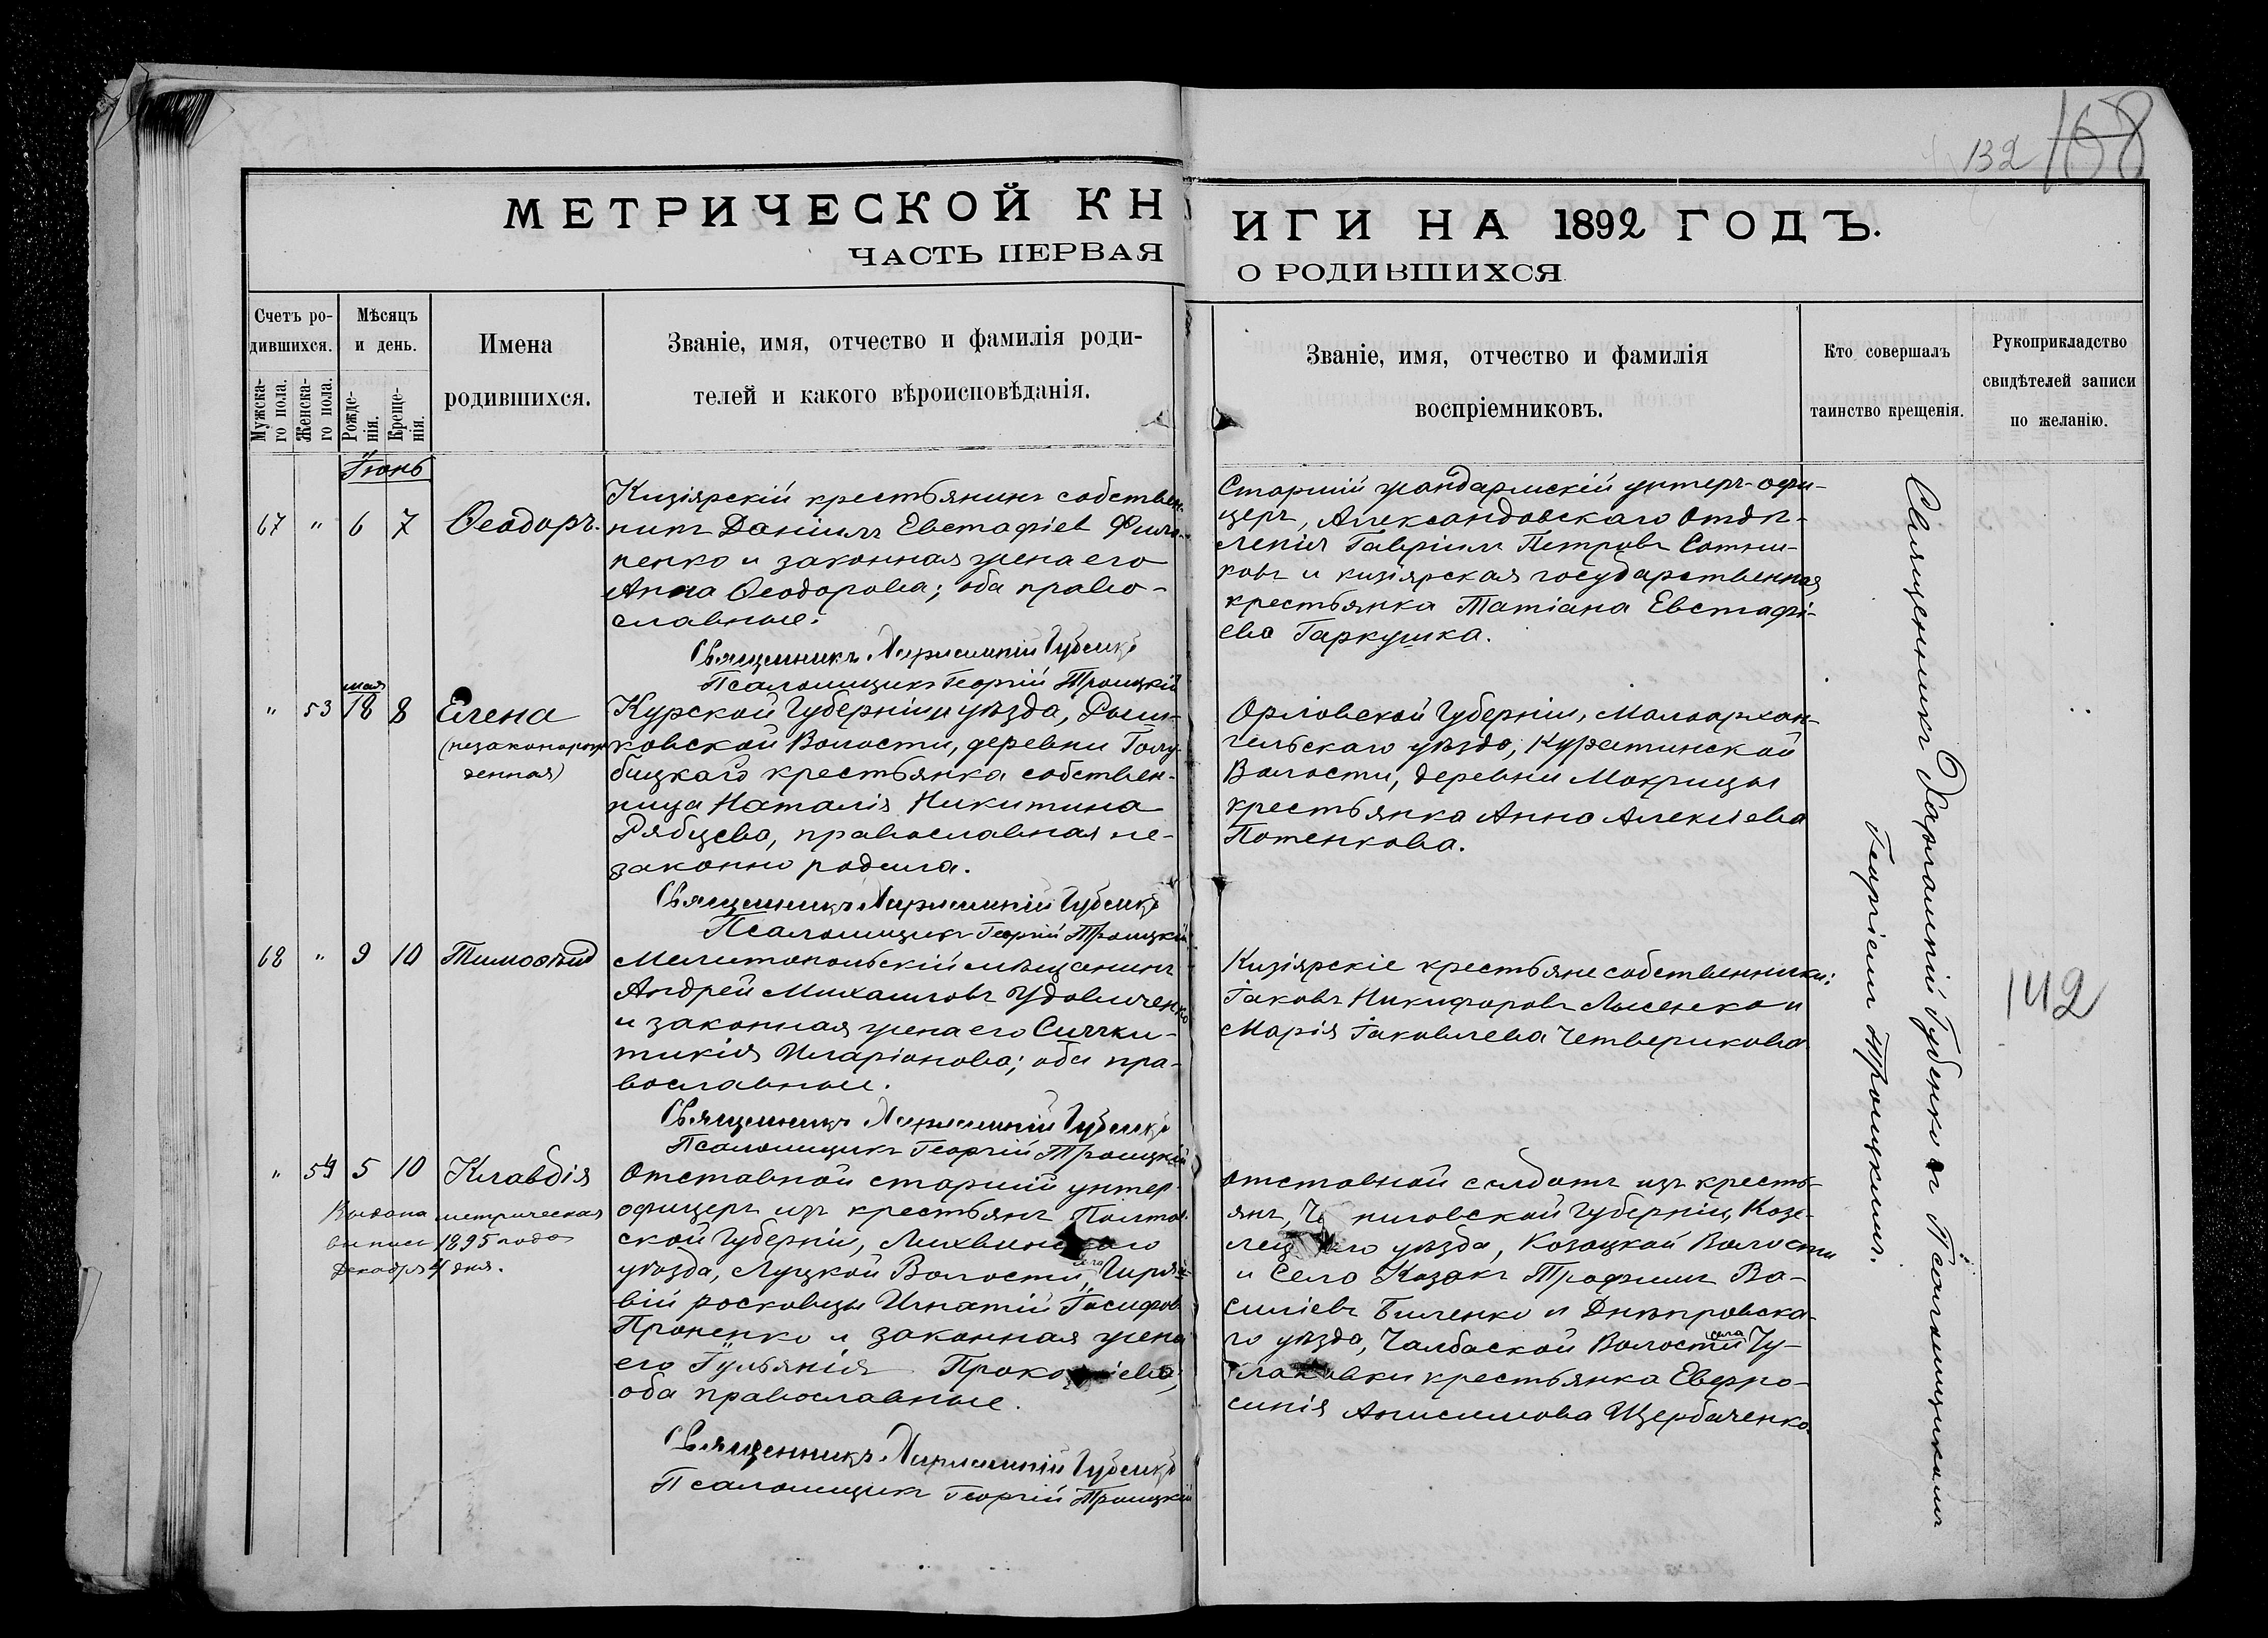 132 168
МЕТРИЧЕСКОЙ КН
ИГИ НА 1892 ГОДЪ.
ЧАСТЬ ПЕРВАЯ
О РОДИВШИХСЯ
Счетъ ро-
дившихся.
Мужска-
го пола.
Женска-
го пола.
Мѣсяцъ
и день.
Рожде-
нія.
Креще-
нія.
Имена
родившихся.
Званіе, имя, отчество и фамилія роди-
телей и какого вѣроисповѣданія.
Званіе, имя, отчество и фамилія
воспріемниковъ.
Кто совершалъ
таинство крещенія.
Рукоприкладство
свидѣтелей записи
по желанію.
Іюнь
67 " 6 7 Ѳеодоръ.
Кизіярскій крестьянинъ собствен-
никъ Даніилъ Евстафіев
пенко и законная жена его
Анна Ѳеодорова; оба право-
славные.
Священникъ Харлампій Губенко
Псаломщикъ Георгій Троицкій
Старшій жандармскій унтеръ-офи-
церъ, Александовскаго Отдѣ-
ленія Гавріилъ Петровъ Сотни-
ковъ и кизіярская государственная
крестьянка Татіана Евстафі-
ева Гаркушка.
мая
" 53 18 8 Елена
(незаконорож
денная)
Курской Губерніи уѣзда,
ковской Волости, деревни Голу-
бицкаго крестьянка собствен-
ница Наталія Никитина
Рябцева, православная не-
законно родила.
Священникъ Харлампій Губенко
Псаломщикъ Георгій Троицкій
Орловской Губерніи, Малоархан-
гельскаго уѣзда,
Волости, деревни Мокрицы
крестьянка Анна Алексіева
Потенкова.
68 " 9 10 Тимоѳей
Мелитопольскій мѣщанинъ
Андрей Михаиловъ Удовиченко
и законная жена его Синкли-
тикія Иларіонова; оба пра-
вославные.
Священникъ Харлампій Губенко
Псаломщикъ Георгій Троицкій
Кизіярскіе крестьяне собственники:
Іаковъ Никифоровъ Лысенко и
Марія Іаковлева Четверикова
" 54 5 10 Клавдія
Выдана метрическая
выпись 1895 года
Декабря 4 дня.
Отставной старшій унтер-
офицеръ изъ крестьянъ Полтав-
ской Губерніи,
уѣзда, Луцкой Волости, села
Игнатій Іосифовъ
Проненко и законная жена
его Іульянія
оба православные.
Священникъ Харлампій Губенко
Псаломщикъ Георгій Троицкій
отставной солдатъ изъ кресть-
янъ, Губерніи, Козе-
уѣзда, Козацкой Волости
и Село Казакъ Трофимъ Ва-
силіевъ Биленко и Днѣпровска-
го уѣзда, Чалбаской Волости села Чу-
лаковки крестьянка Евфро-
синія Анисимова Щербаченко.
Священникъ Харлампій Губенко съ Псаломщикомъ
Георгіемъ Троицкимъ.
142